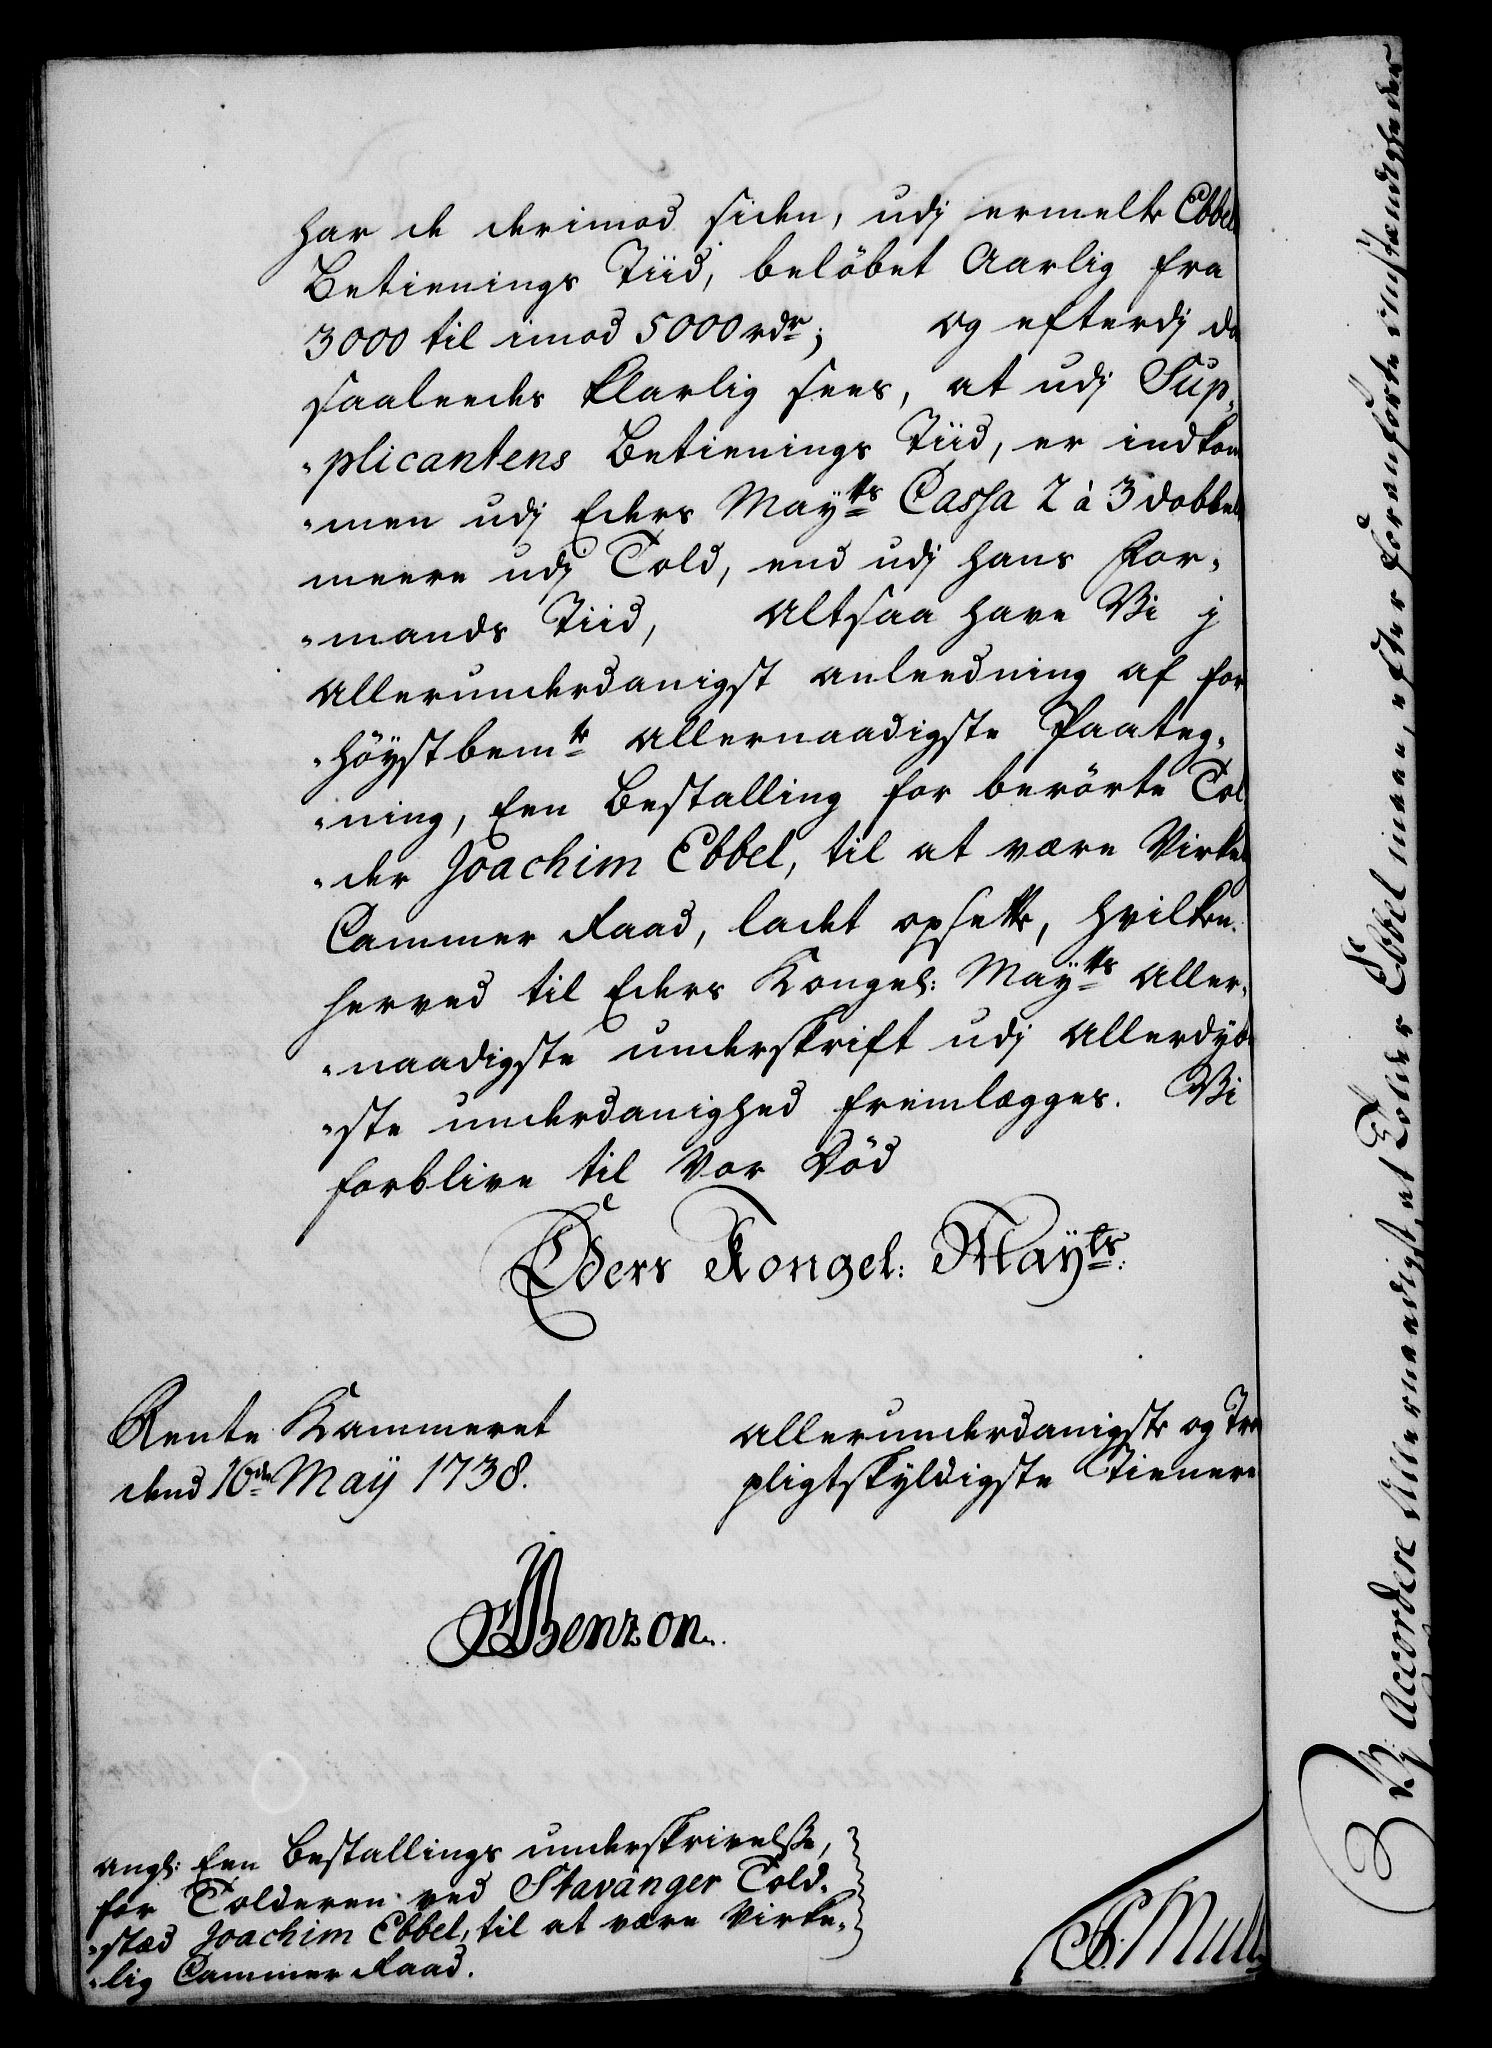 har de derimod siden, udj ermelte Ebbels
Betienings Tiid, belöbet Aarlig fra
3000 til imod 5000 rdr; og efterdj da
saaleedes klarlig sees, at udj Sup-
-plicantens Betienings Tiid, er indkom
-men udj Eders Mayts Cassa 2 à 3 dobbelt
meere udj Told, end udj hans For-
-mands Tiid, Altsaa have Vi j
allerunderdanigst anleedning af for
-höystbemte allernaadigste Paateg-
-ning, Een Bestalling for berörte Tol
-der Joachim Ebbel, til at være Virkel
Cammer Raad, ladet opsette, hvilken
herved til Eders Kongel: Mayts Aller-
-naadigste underskrift udj allerdyb-
-ste underdanighed fremlægges. Vi
forblive til Vor Död
Eders Kongel: Mayts:
Rente Kammeret
dend 16de May 1738.
allerunderdanigste og Tro
pligtskyldigste Tienere
Benzon.
angl: Een Bestallings underskrivelse,
for Tolderen ved Stavanger Told-
-sted Joachim Ebbel, til at være Virke-
-lig Cammer Raad.
Mull
Vj Accordere Allernaadigst, at Tolder Ebbel maae, efter foranförte Omstændigheder